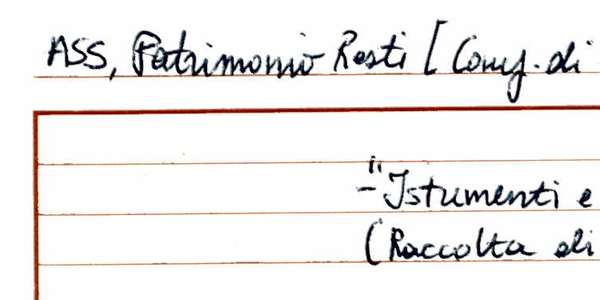 ASS, Patrimonio Resti [Cong. di
- "Istumenti e
(Raccolta di